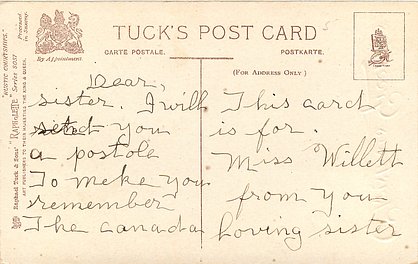 TUCK'S POST CARD
CARTE POSTALE.
POSTKARTE.
By Appointment.
(FOR ADDRESS ONLY)
Dear,
sister. I will
send you
a postole
To meke you
remember
The canada
This card
is for.
Miss Willett
from you
loving sister
"RUSTIC COURTSHIPS."
"RAPHOLETTE" SERIES
Raphael Tuck & Sons'
ART PUBLISHERS TO THEIR MAJESTIES THE KING & QUEEN.